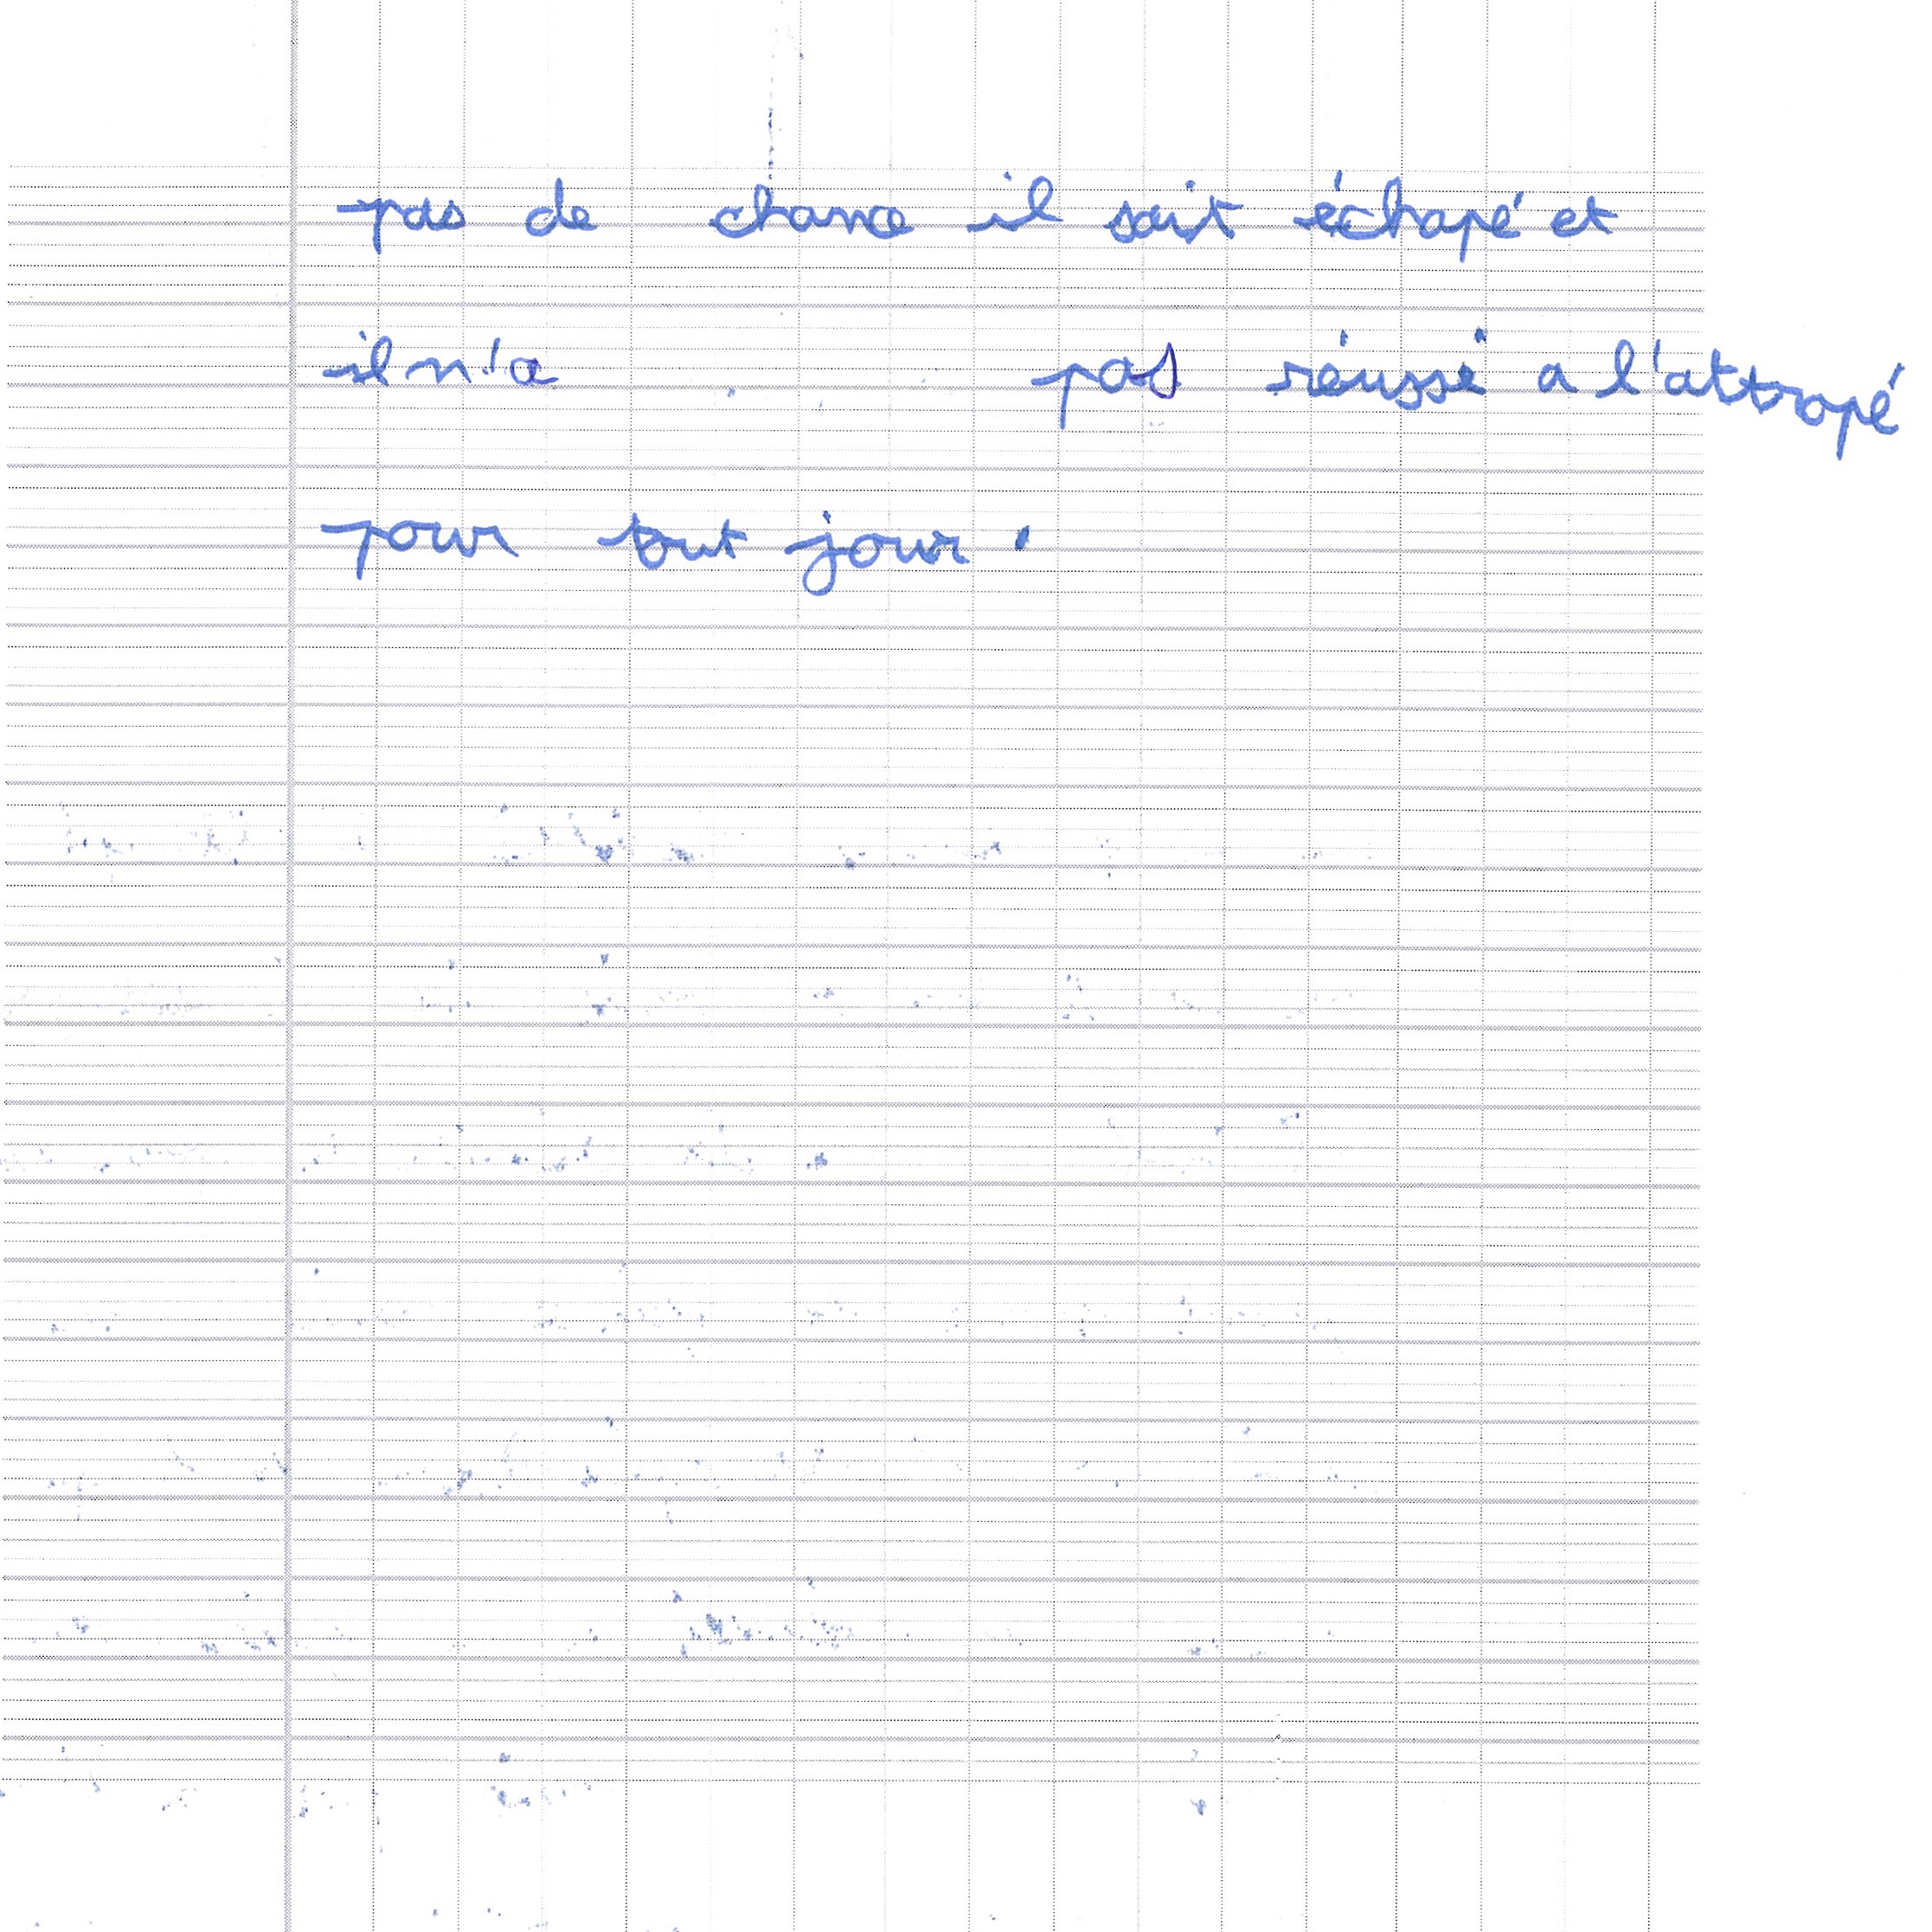 pas de chance il sait échapé et
il n'a pas réussi a l'attrapé
pour tout jour.